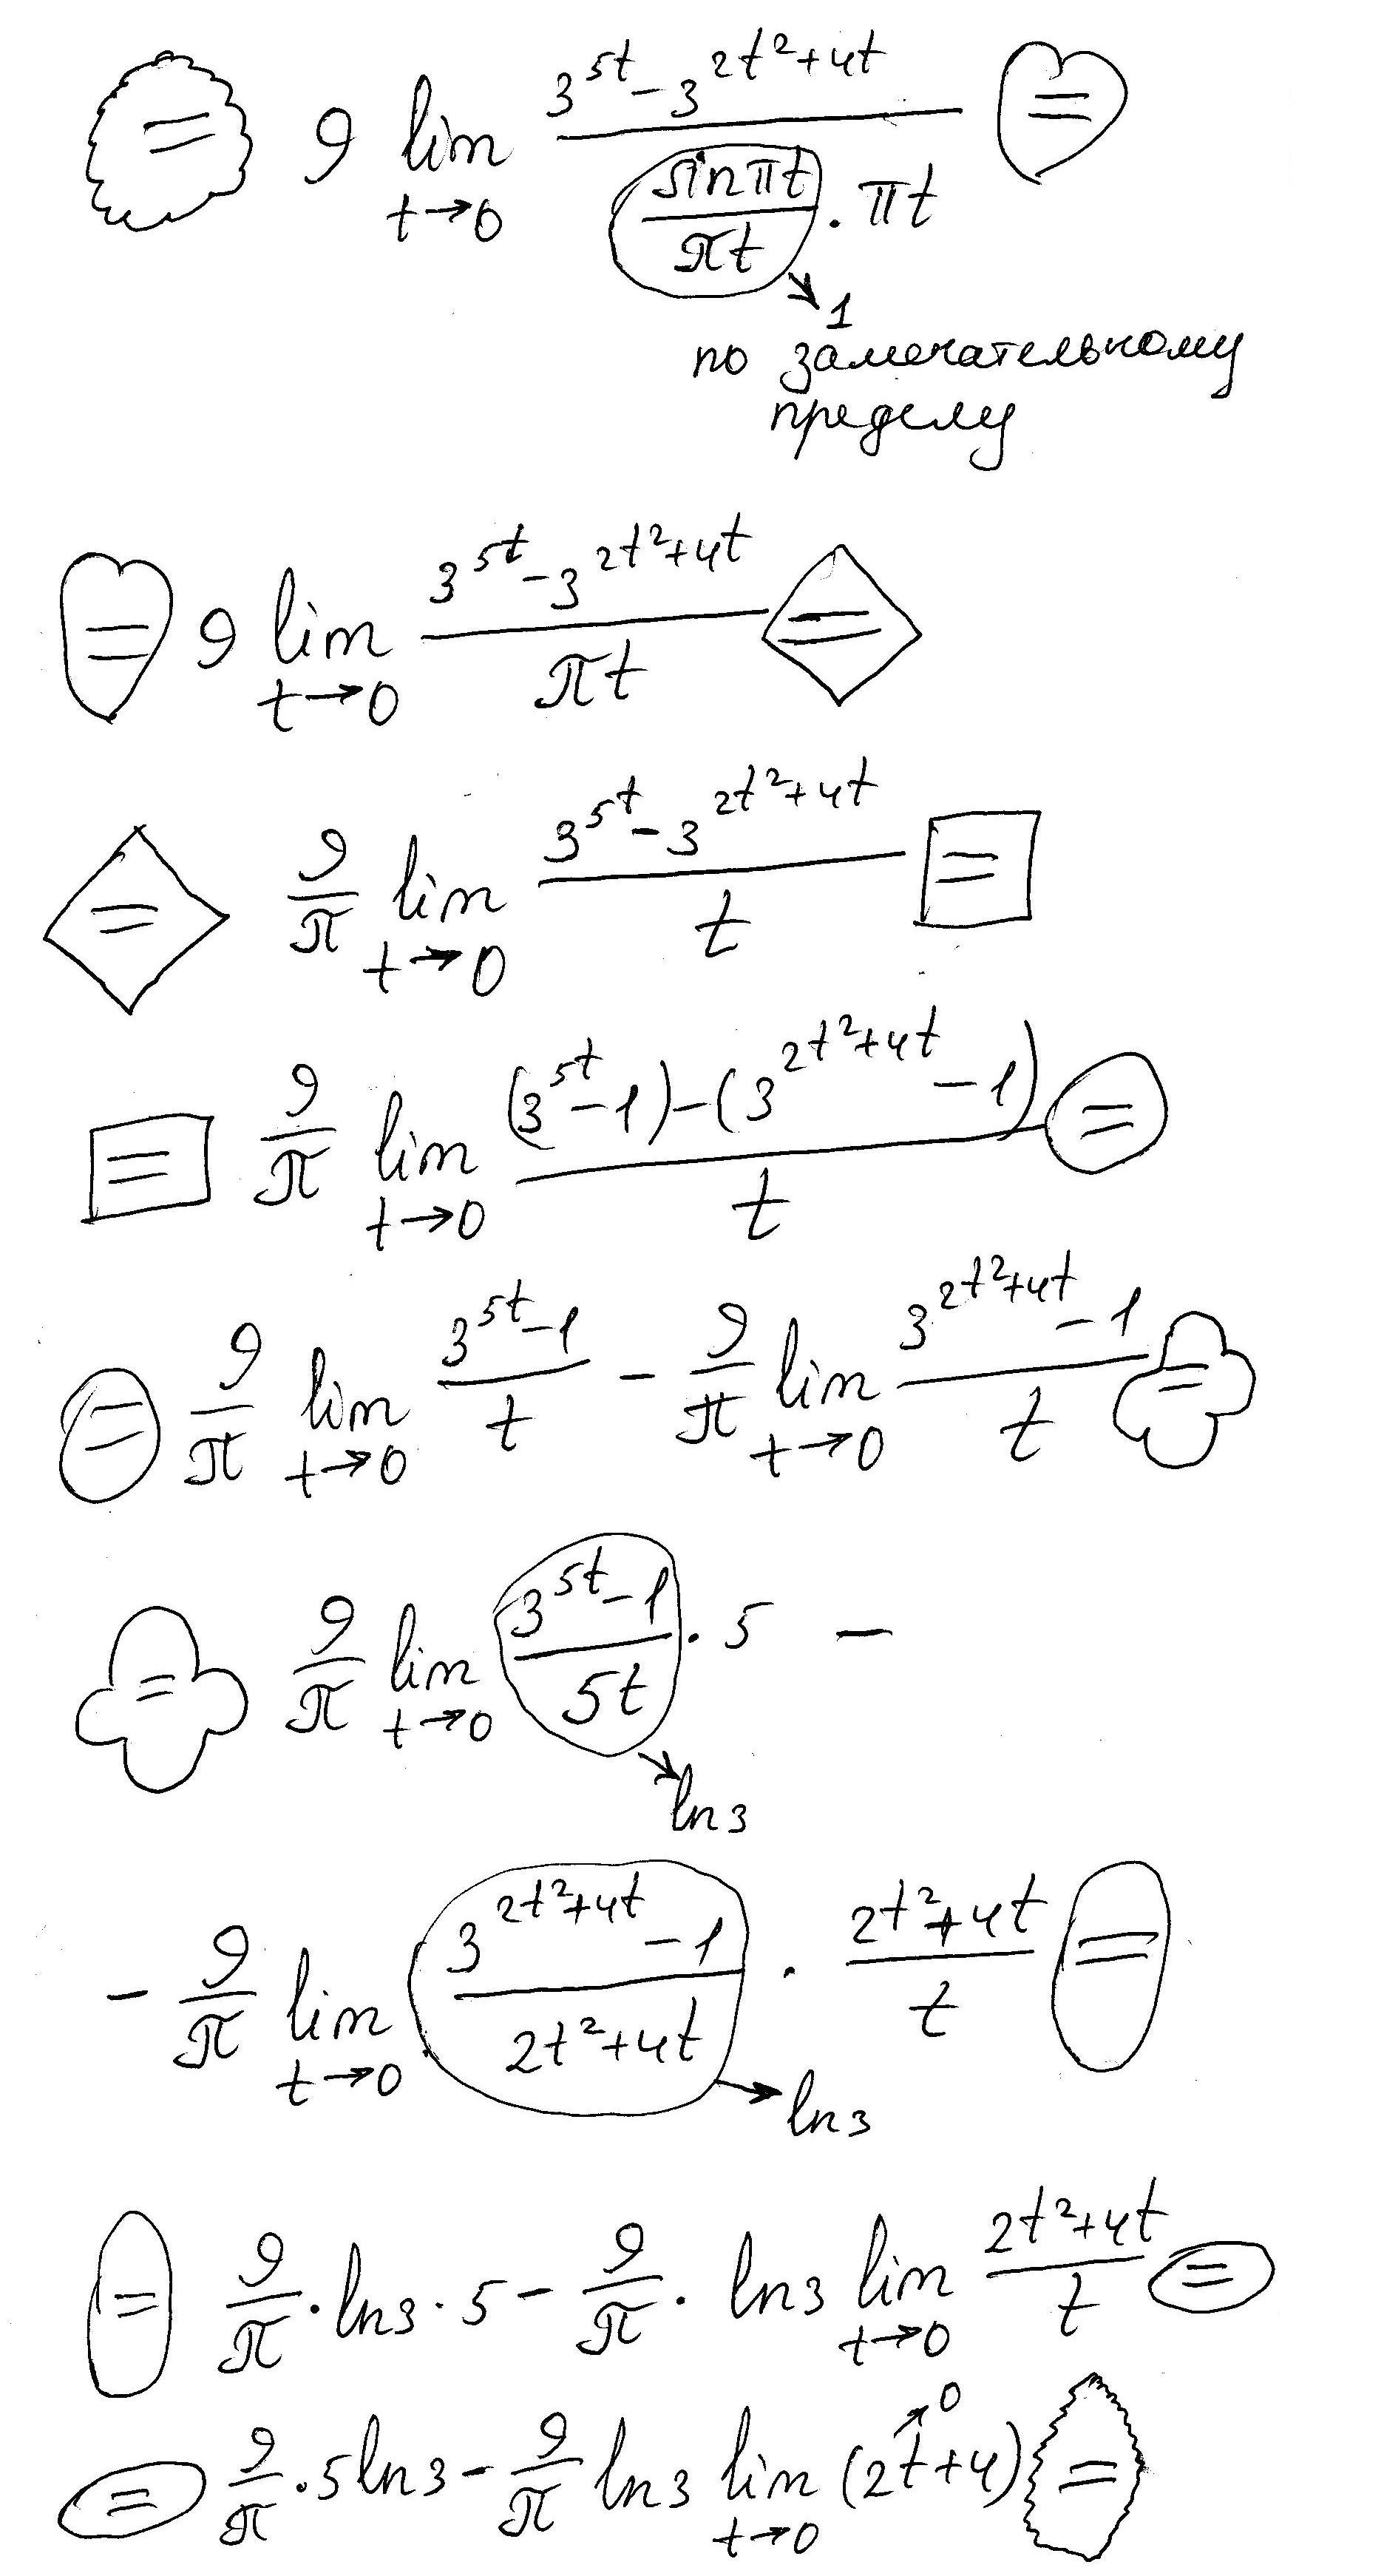 = 9 lim 3^{5t} - 3^{2t²+4t} =
t→0 sinπt / πt · πt
1
по замечательному
пределу
= 9 lim 3^{5t} - 3^{2t²+4t} =
t→0 πt
= 9/π lim 3^{5t} - 3^{2t²+4t} =
t→0 t
= 9/π lim (3^{5t} - 1) - (3^{2t²+4t} - 1) =
t→0 t
= 9/π lim 3^{5t} - 1 / t - 9/π lim 3^{2t²+4t} - 1 / t =
t→0 t→0
= 9/π lim 3^{5t} - 1 / 5t · 5 -
t→0
ln3
- 9/π lim 3^{2t²+4t} - 1 / 2t²+4t · 2t²+4t / t =
t→0
ln3
= 9/π · ln3 · 5 - 9/π · ln3 lim 2t²+4t / t =
t→0
0
= 9/π · 5ln3 - 9/π ln3 lim (2t+4) =
t→0